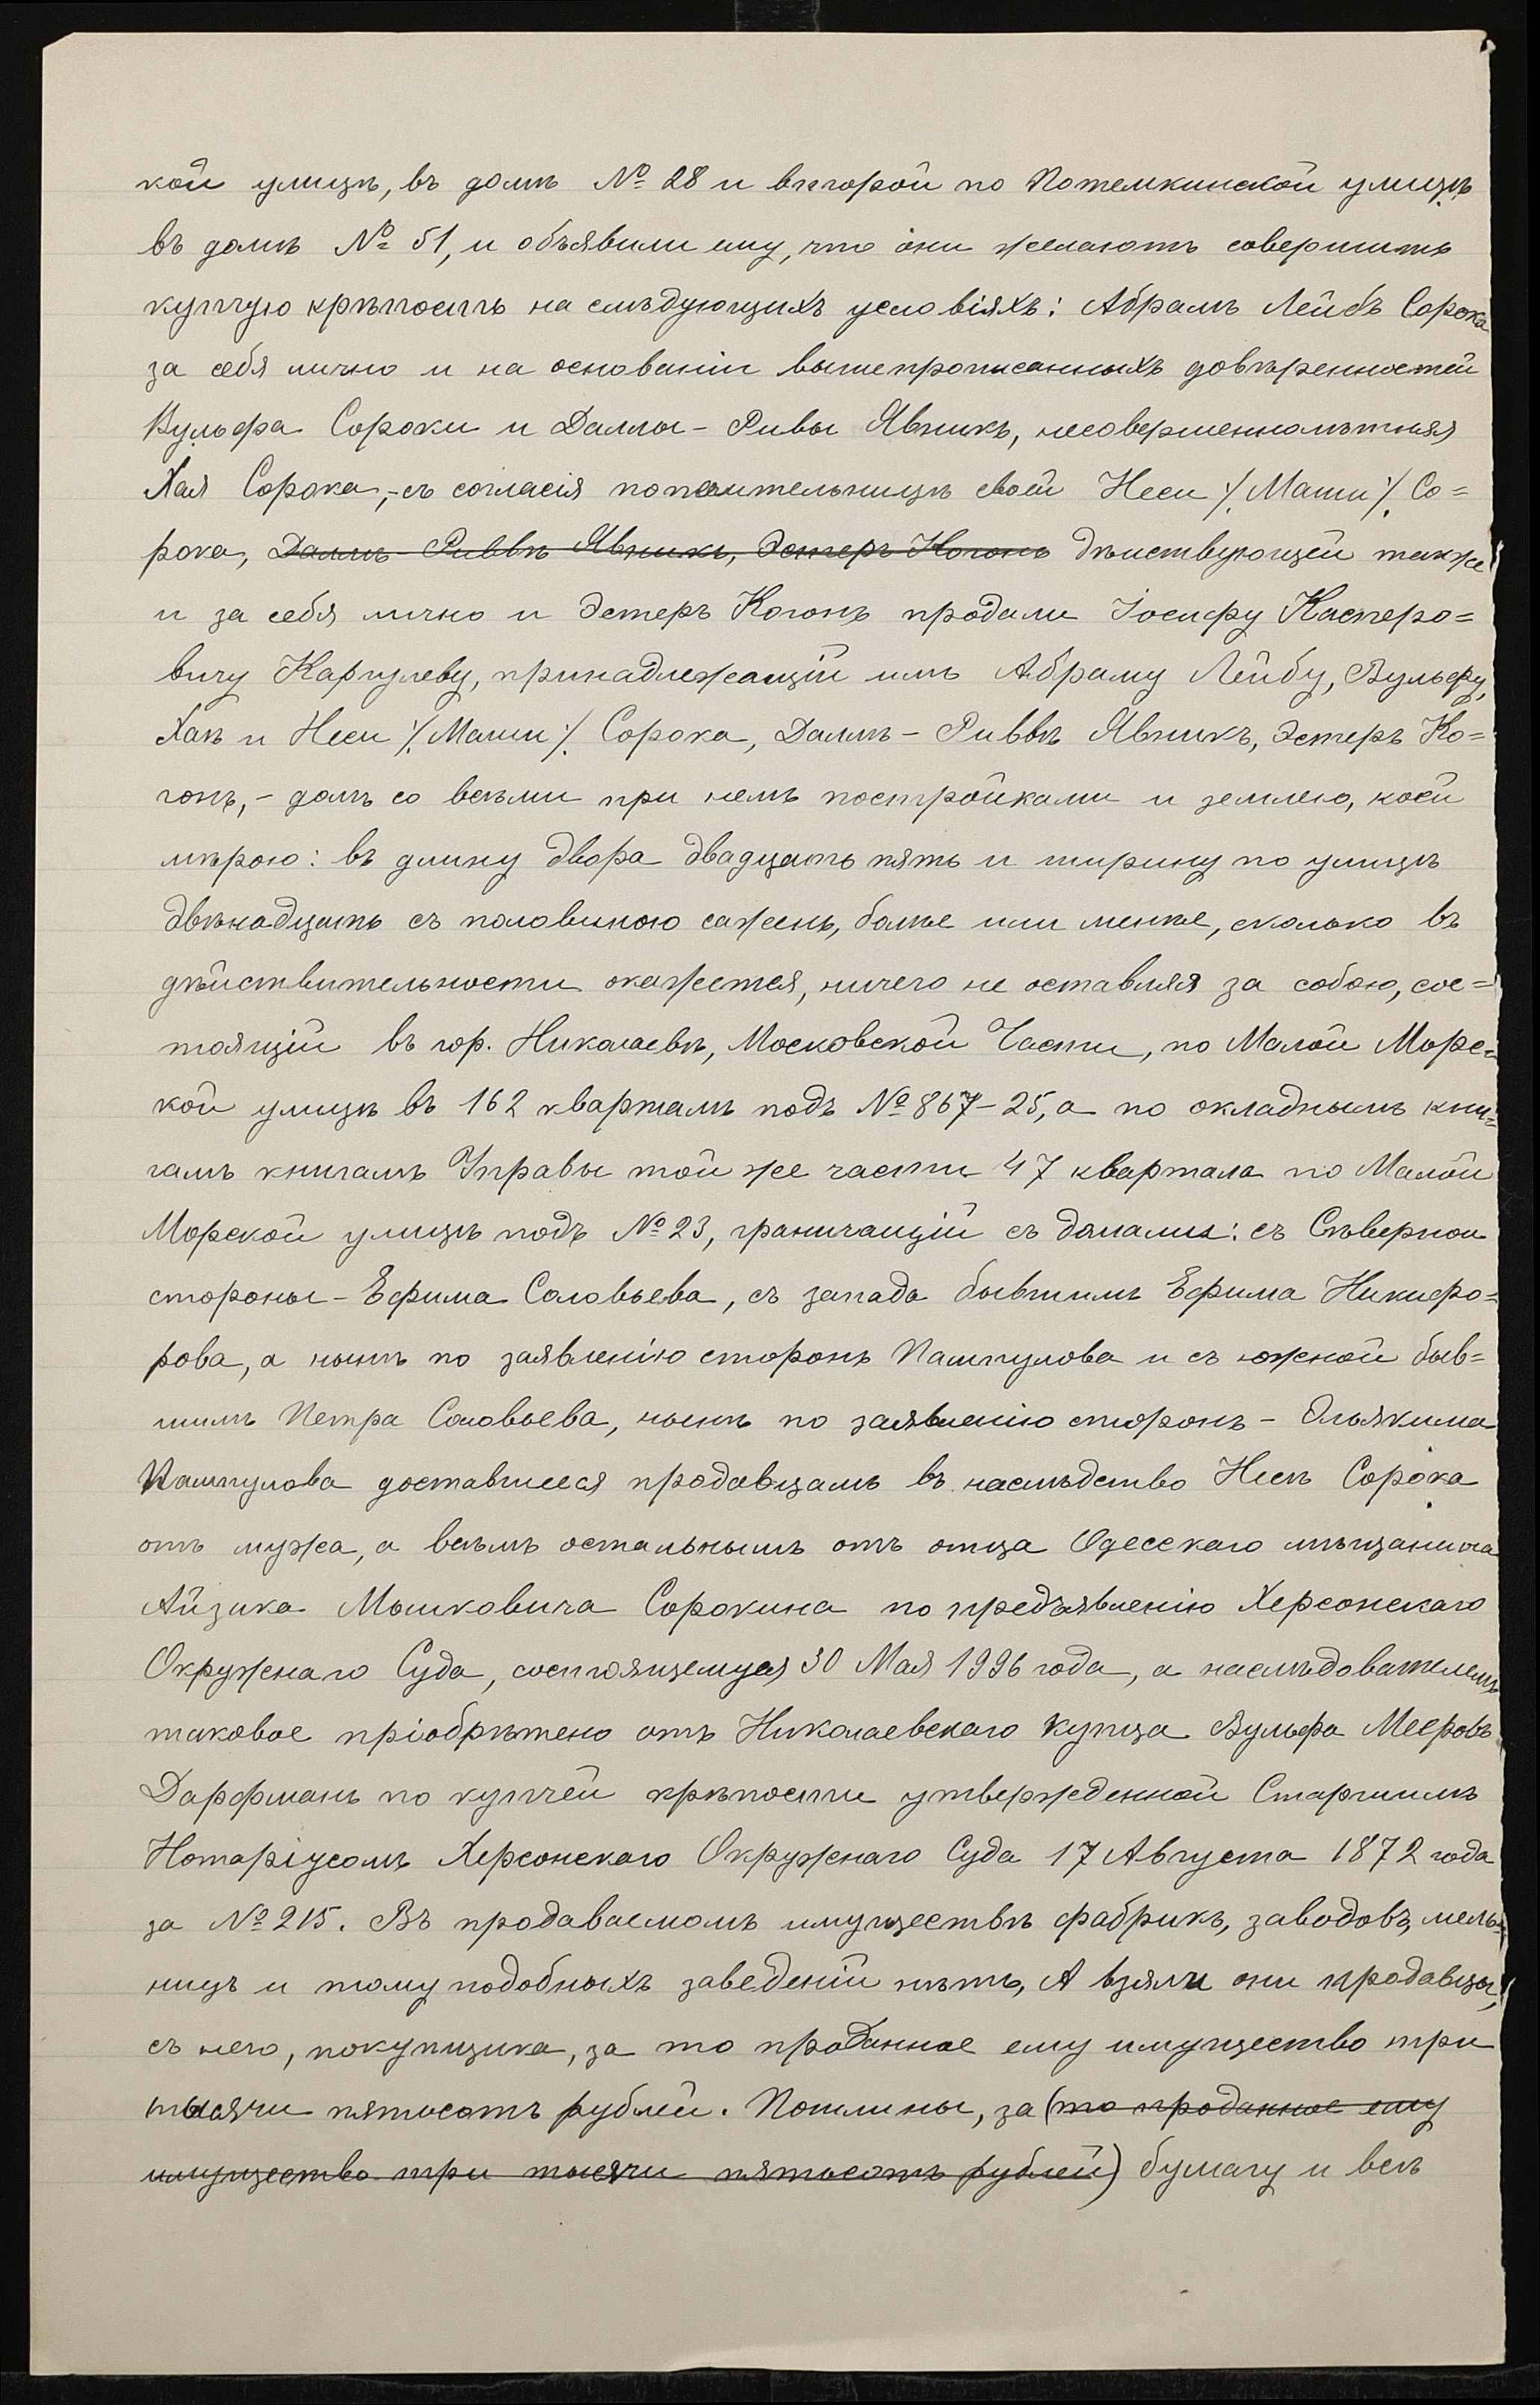 кой улицѣ, въ домѣ № 28 и второй по Потемкинской улицѣ
въ домѣ № 51, и объявили ему, что они желаютъ совершить
купчую крѣпость на слѣдующихъ условіяхъ: Абрамъ Лейбъ Сорока
за себя лично и на основаніи вышепрописанныхъ довѣренностей
Вульфа Сороки и Даллы-Ривы Явникъ, несовершеннолѣтняя
Хая Сорока,-съ согласія попечительницы своей Неси /.Маши/. Со=
рока, Даллѣ-Риввѣ Явникъ, Эстеръ Когонъ дѣйствующей также
и за себя лично и Эстеръ Когонъ продали Іосифу Кастеро=
вичу Карпулеву, принадлежащій имъ Абраму Лейбу, Вульфу,
Хаѣ и Неси /.Маши/. Сорока, Даллѣ-Риввѣ Явникъ, Эстеръ Ко=
гонъ,- домъ со всѣми при немъ постройками и землею, коей
мѣрою: въ длину двора двадцать пять и ширину по улицѣ
двѣнадцать съ половиною сажень, болѣе или менѣе, сколько въ
дѣйствительности окажется, ничего не оставляя за собою, сос=
тоящій въ гор. Николаевѣ, Московской Части, по Малой Морс=
кой улицѣ въ 162 кварталѣ подъ № 867-25, а по окладнымъ кни=
гамъ книгамъ Управы той же части 47 квартала по Малой
Морской улицѣ подъ № 23, граничащій съ домами: съ Сѣверной
стороны - Ефима Соловьева, съ запада бывшимъ Ефима Никифо=
рова, а нынѣ по заявленію сторонъ Пампулова и съ южной быв=
шимъ Петра Соловьева, нынѣ по заявленію сторонъ - Эльякима
Пампулова доставшееся продавцамъ въ наслѣдство Несѣ Сорока
отъ мужа, а всѣмъ остальнымъ отъ отца Одесскаго мѣщанина
Айзика Мошковича Сорокина по предъявленію Херсонскаго
Окружнаго Суда, состоящемуся 30 Мая 1996 года, а наслѣдователемъ
таковое пріобрѣтено отъ Николаевскаго купца Вульфа Мееровъ
Дарфманъ по купчей крѣпости утвержденной Старшимъ
Нотаріусомъ Херсонскаго Окружнаго Суда 17 Августа 1872 года
за № 215. Въ продаваемомъ имуществѣ фабрикъ, заводовъ, мель=
ницъ и тому подобныхъ заведеній нѣтъ, А взяли они продавцы,
съ него, покупщика, за то проданное ему имущество три
тысячи пятьсотъ рублей. Пошлины, за (то проданное ему
имущество три тысячи пятьсотъ рублей) бумагу и всѣ